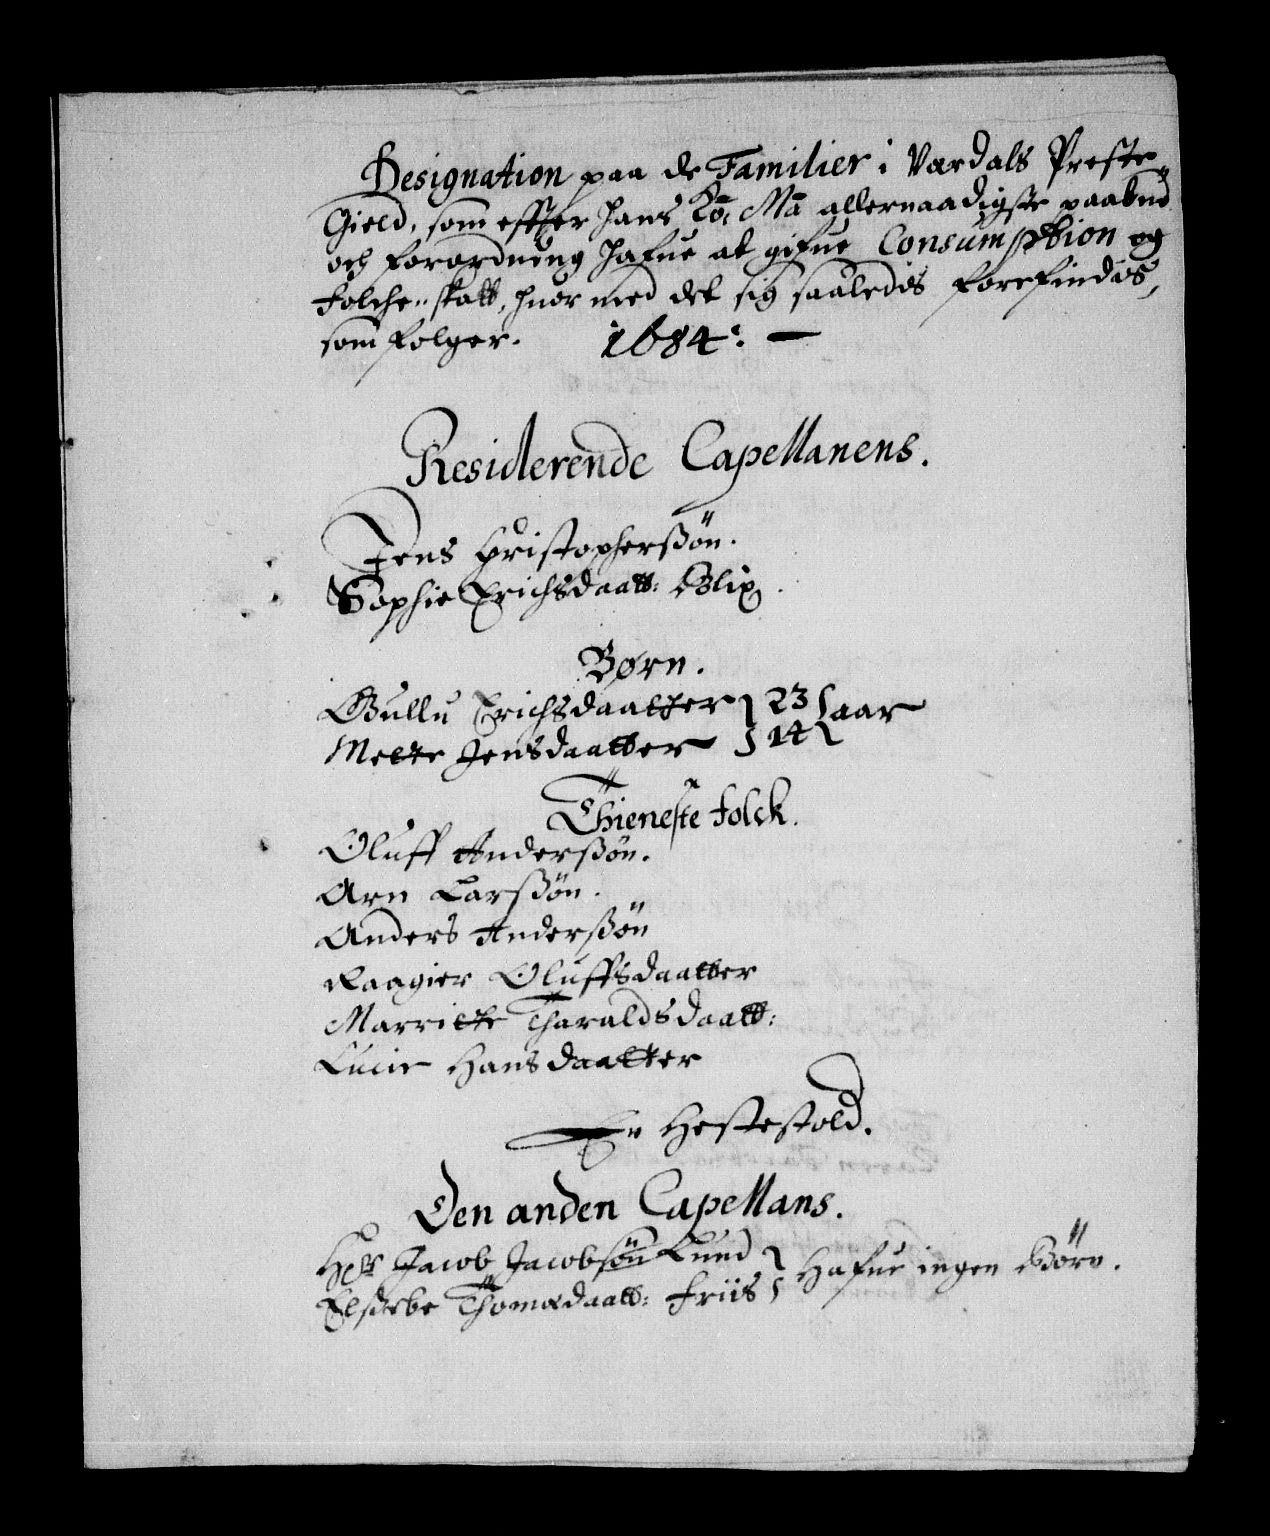 Designation paa de Familier i Vardals Preste
Gield, som effter hans Kō: Mā allernaadigste paabud
och forordning hafue at gifue Consumption og
folche-skatt, huor med det sig saaledis forefindes,
som følger. 1684: —
Residerende Capellanens.
Jens Christopherßøn.
Sophie Erichsdaatt: Blix.
Børn.
Gullu Erichsdaatter } 23 { aar
Mette Jensdaatter } 14 {
Thieneste folck.
Oluff Anderßøn.
Arn Larßøn.
Anders Anderßøn
Raagier Oluffsdaatter
Marritte Tharaldsdaatt:
Lucie Hansdaatter
En Hestestold.
Den anden Capellans.
Her Jacob Jacobsøn Lund } Hafue ingen Børn.
Elßebe Thomædaatt: Friis }